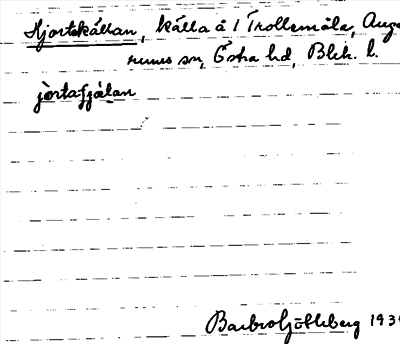 Hjortakällan, källa å 1 Trollemåla, Auge
rums sn, Östra hd, Blek. l.
jòrtaſjálan
Barbro Göbleberg 193